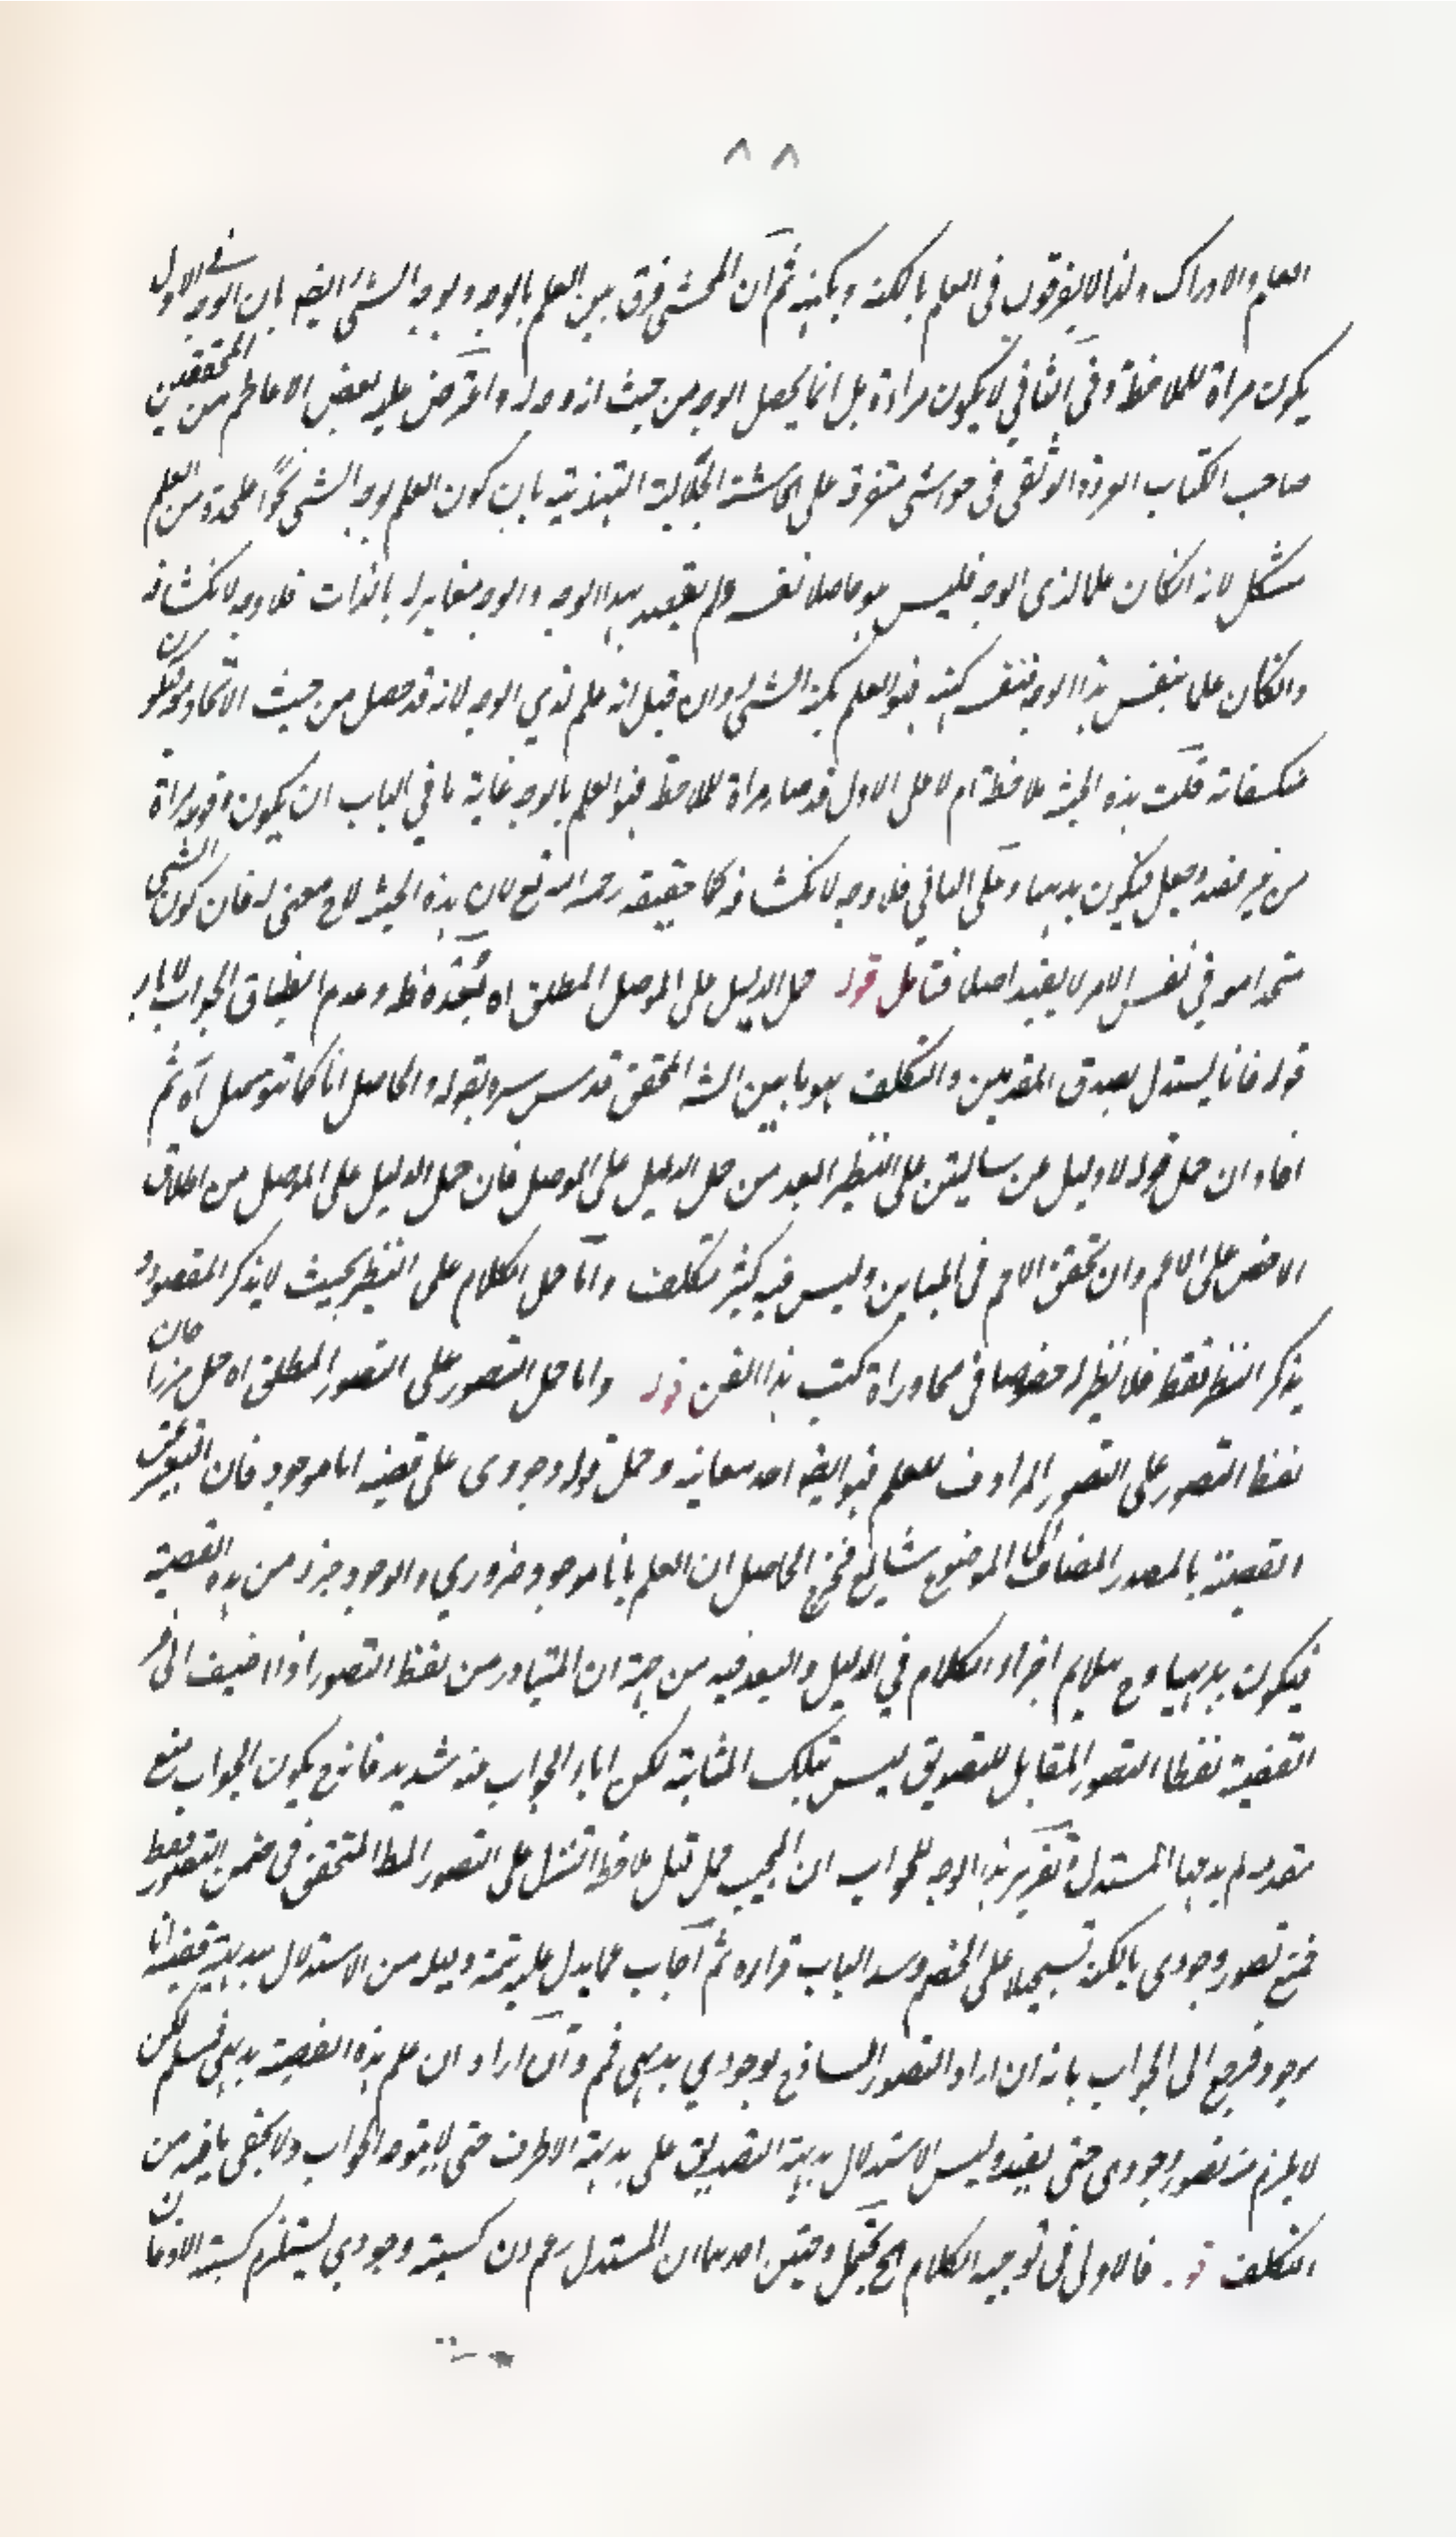 ٨٨
العلم والادراك ولذا لا يفرقون فى العلم بالكنه وبكنهه ثم ان المحشى فرق بين العلم بالوجه وبوجه الشئ ايضا بان الوجه فى الاول
يكون مراة للملاحظة وفى الثاني لا يكون مراءة بل انما يحصل الوجه من حيث انه وجه له واعترض عليه بعض الاعاظم من المحققين
صاحب الكتاب العروة الوثقى فى حواشى متفرقة على الحاشية الجلالية التهذيبية بان كون العلم بوجه الشئ نحوا علحدة من العلم
مشكل لانه انكان علما لذى الوجه فليس هو حاصلا بنفسه ولم يقصد بهذا الوجه والوجه مغاير له بالذات فلا وجه لانكشافه
وانكان علما بنفس هذا الوجه فبنفسه كنهه فهو العلم بكنه الشئ وان قيل انه علم لذي الوجه لانه قد حصل من حيث الاتحاد معه فيكون
منكشفا به قلت هذه الحيثية ملاحظة ام لا على الاول قد صار مراة للملاحظة فهو العلم بالوجه غاية ما في الباب ان يكون وقوعه مراة
من غير قصد وجعل فيكون بديهيا وعلى الثاني فلا وجه لانكشافه كما حقيقه رحمه الله تع لان هذه الحيثية لاح معنى له فان كون الشئ
متحدا معه في نفس الامر لا يفيد اصلا فتامل قوله حمل الدليل على الموصل المطلق اه بعده ظ وعدم انطباق الجواب لاباء
قوله فانا يستدل بصدق المقدمتين والتكلف هو ما بين الشه المحقق قدس سره بقوله والحاصل انا كما نتوصل اه ثم
افاد ان حمل قوله لا دليل عن سالبتين على النظير ابعد من حمل الدليل على الموصل فان حمل الدليل على الموصل من اطلاق
الاخص على الاعم وان تحقق الاعم فى المباين وليس فيه كثير تكلف واما حمل الكلام على النظير بحيث لا يذكر المقصود و
يذكر النظير فقط فلا نظير له خصوصا فى محاوراة كتب هذا الفن قوله واما حمل التصور على التصور المطلق اه حمل مرزا جان
لفظ التصور على التصور المرادف للعلم فهو ايضا احد معانيه وحمل قوله وجودى على قضية انا موجود فان التعبير عن
القضية بالمصدر المضاف الى الموضوع شايع فخرج الحاصل ان العلم بانا موجود ضروري والوجود جزء من هذه القضية
فيكون بديهيا وح يلايم اجزاء الكلام في الدليل والبعد فيه من جهة ان المتبادر من لفظ التصور اذا اضيف الى
القضية لفظا التصور المقابل للتصديق ليس بتلك المثابة لكن اباء الجواب عنه شديد فانه ح يكون الجواب منع
مقدمة لم يدعها المستدل وتقرير هذا الوجه للجواب ان المجيب حمل قبل ملاحظة التنزل على التصور المط المتحقق فى ضمن التصور فقط
فمنع تصور وجودى بالكنه تسجيلا على الخصم وسد الباب قراره ثم اجاب عما يدل عليه تتمة دليله من الاستدلال ببديهية قضية انا
موجود فرجع الى الجواب بانه ان اراد التصور الساذج لوجودي بديهي فمم وان اراد ان علم هذه القضية بديهي فمسلم لكن
لا يلزم منه تصور وجودى حتى يفيد وليس الاستدلال ببديهية التصديق على بديهية الاطراف حتى لا يتوجه الجواب ولا يخفى ما فيه من
التكلف قوله فالاولى فى توجيه الكلام اه يحتمل وجهين احدهما ان المستدل زعم ان كسبية وجودي يستلزم كسبية الاذعان